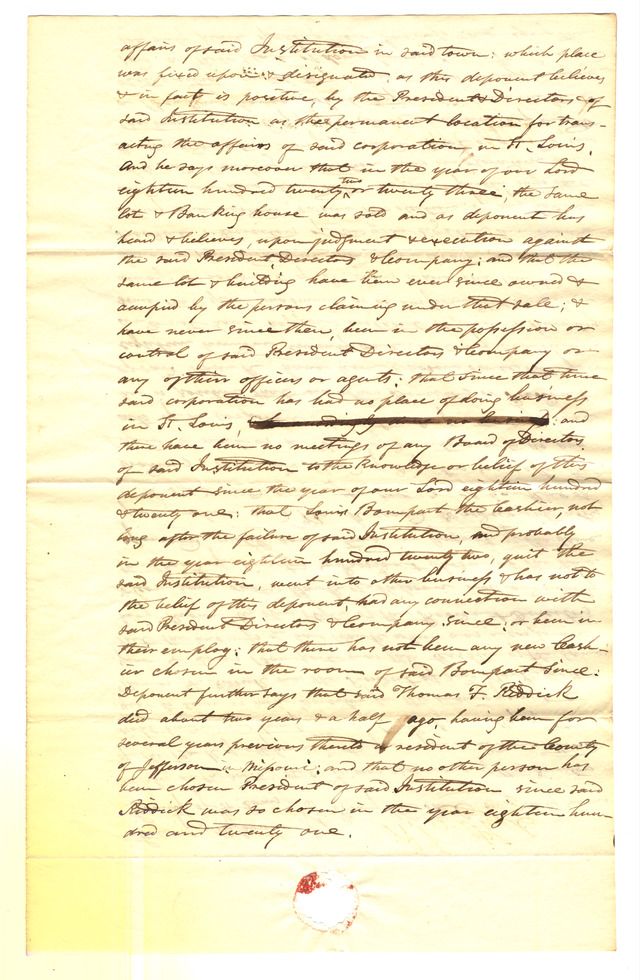 affairs of said Institution in said town: which place
was fixed upon & designated, as this deponent believes
& in fact is positive, by the President & Directors of
said Institution as the permanent location for trans-
acting the affairs of said corporation, in St. Louis.
And he says moreover that in the year of our Lord
eighteen hundred twenty two or twenty three, the same
lot & Banking house was sold and as deponent has
heard & believes, upon judgment & execution against
the said President, Directors & Company; and that the
same lot & building have been ever since owned &
occupied by the persons claiming under that sale; &
have never since then, been in the possession or
control of said President Directors & Company or
any of their officers or agents: that since that time
said corporation has had no place of doing business
in St. Louis, : and
there have been no meetings of any Board of Directors
of said Institution to the knowledge or belief of this
deponent since the year of our Lord eighteen hundred
& twenty one: that Louis Bompart the Cashier, not
long after the failure of said Institution, and probably
in the year eighteen hundred twenty two, quit the
said Institution, went into other business & has not to
the belief of this deponent, had any connection with
said President Directors & Company since; or been in
their employ: that there has not been any new Cash-
ier chosen in the room of said Bompart since:
Deponent further says that said Thomas F. Riddick
died about two years & a half ago, having been for
several years previous thereto a resident of the County
of Jefferson in Missouri; and that no other person has
been chosen President of said Institution since said
Riddick was so chosen in the year eighteen hun-
dred and twenty one.